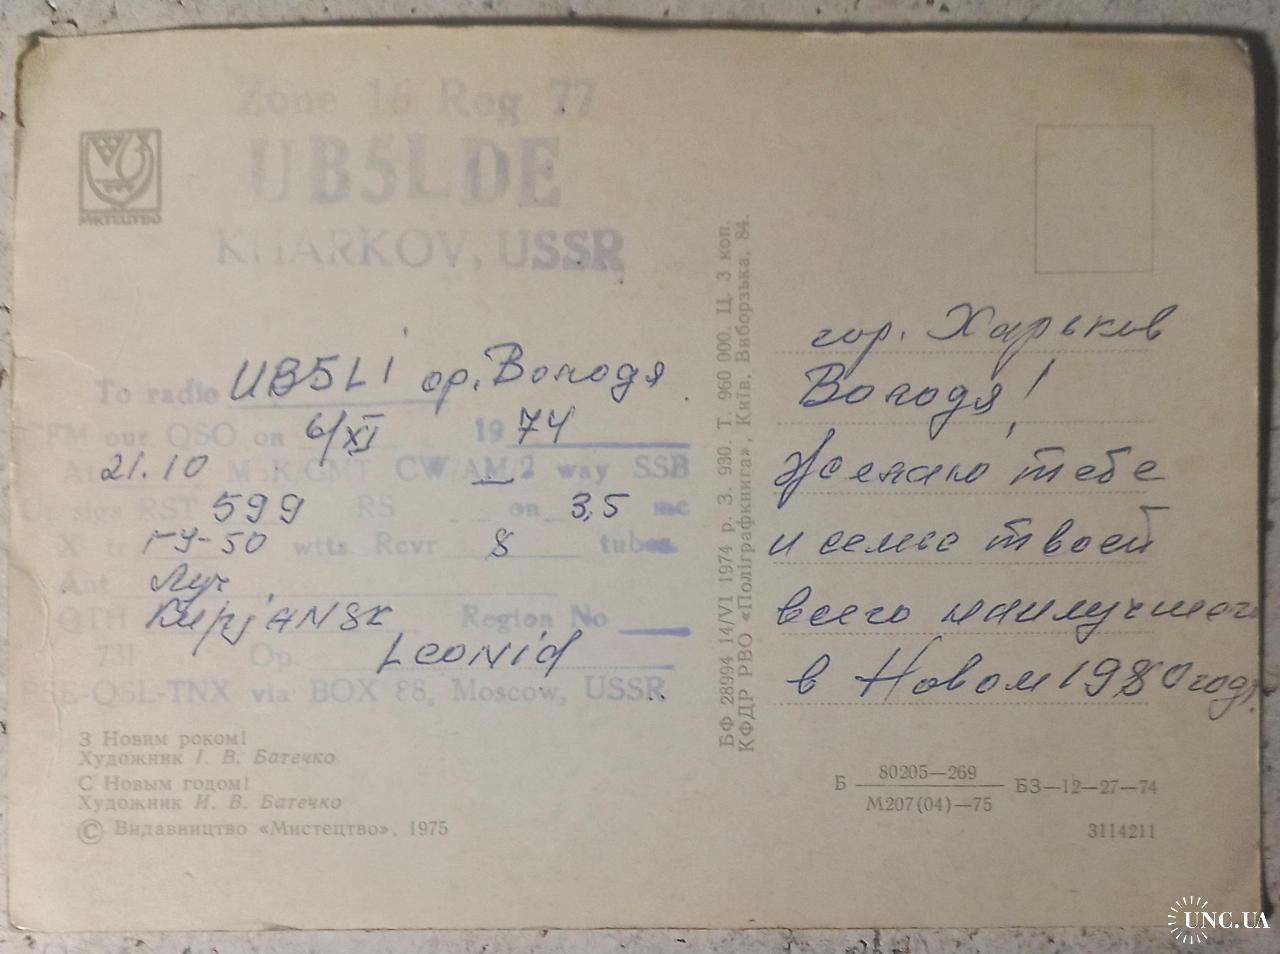 Zone 16 Reg 77
UB5LDE
KHARKOV, USSR
МИСТЕЦТВО
To radio UB5LI ор. Володя
CFM our QSO on 6/XI 1974
At 21.10 MSK/GMT CW/AM/2 way SSB
Ur sigs RST 599 RS on 3,5 mc
X tr ГУ-50 wtts Rcvr 8 tubes
Ant Луч
QTH KupjANSK Region No
731 Op. Leonid
PSE-QSL-TNX via BOX 88, Moscow, USSR
З Новим роком!
Художник І. В. Батечко
С Новым годом!
Художник И. В. Батечко
© Видавництво «Мистецтво», 1975
БФ 28994 14/VI 1974 р. З. 930. Т. 960 000. Ц. 3 коп.
КФДР РВО «Поліграфкнига», Київ, Виборзька, 84.
гор. Харьков
Володя!
Желаю тебе
и семье твоей
всего наилучшего
в Новом 1980 году.
Б 80205—269 БЗ—12—27—74
М207(04)—75
3114211
UNC.UA